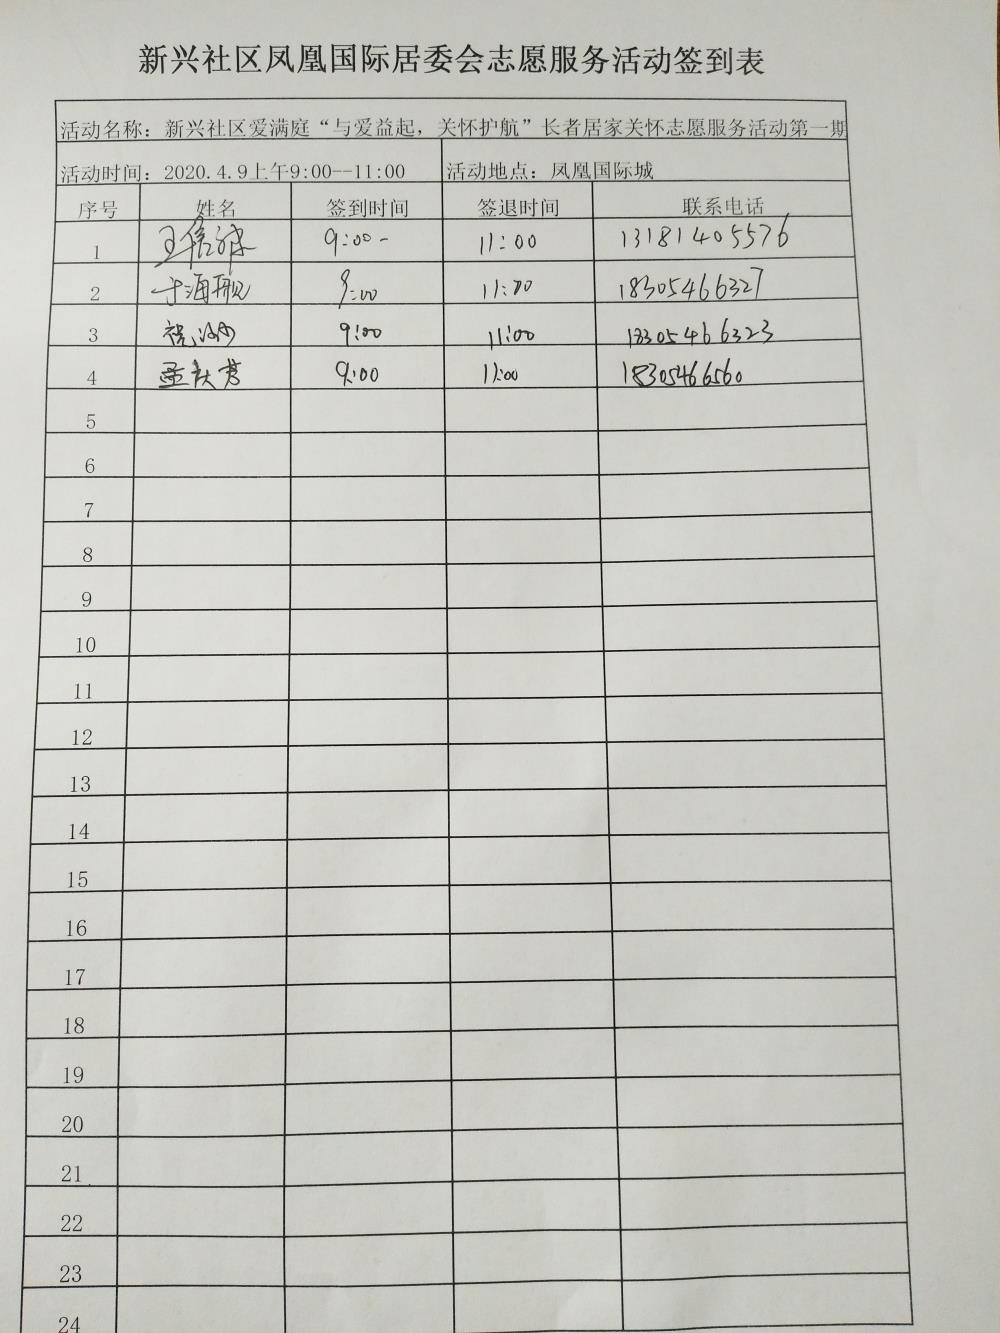 新兴社区凤凰国际居委会志愿服务活动签到表
活动名称：新兴社区爱满庭“与爱益起，关怀护航”长者居家关怀志愿服务活动第一期
活动时间：2020.4.9上午9:00--11:00 活动地点：凤凰国际城
序号 姓名 签到时间 签退时间 联系电话
1 9:00- 11:00 13181405576
2 于海 9:00 11:00 18305466327
3 9:00 11:00 18305466323
4 9:00 11:00 18305466560
5
6
7
8
9
10
11
12
13
14
15
16
17
18
19
20
21
22
23
24